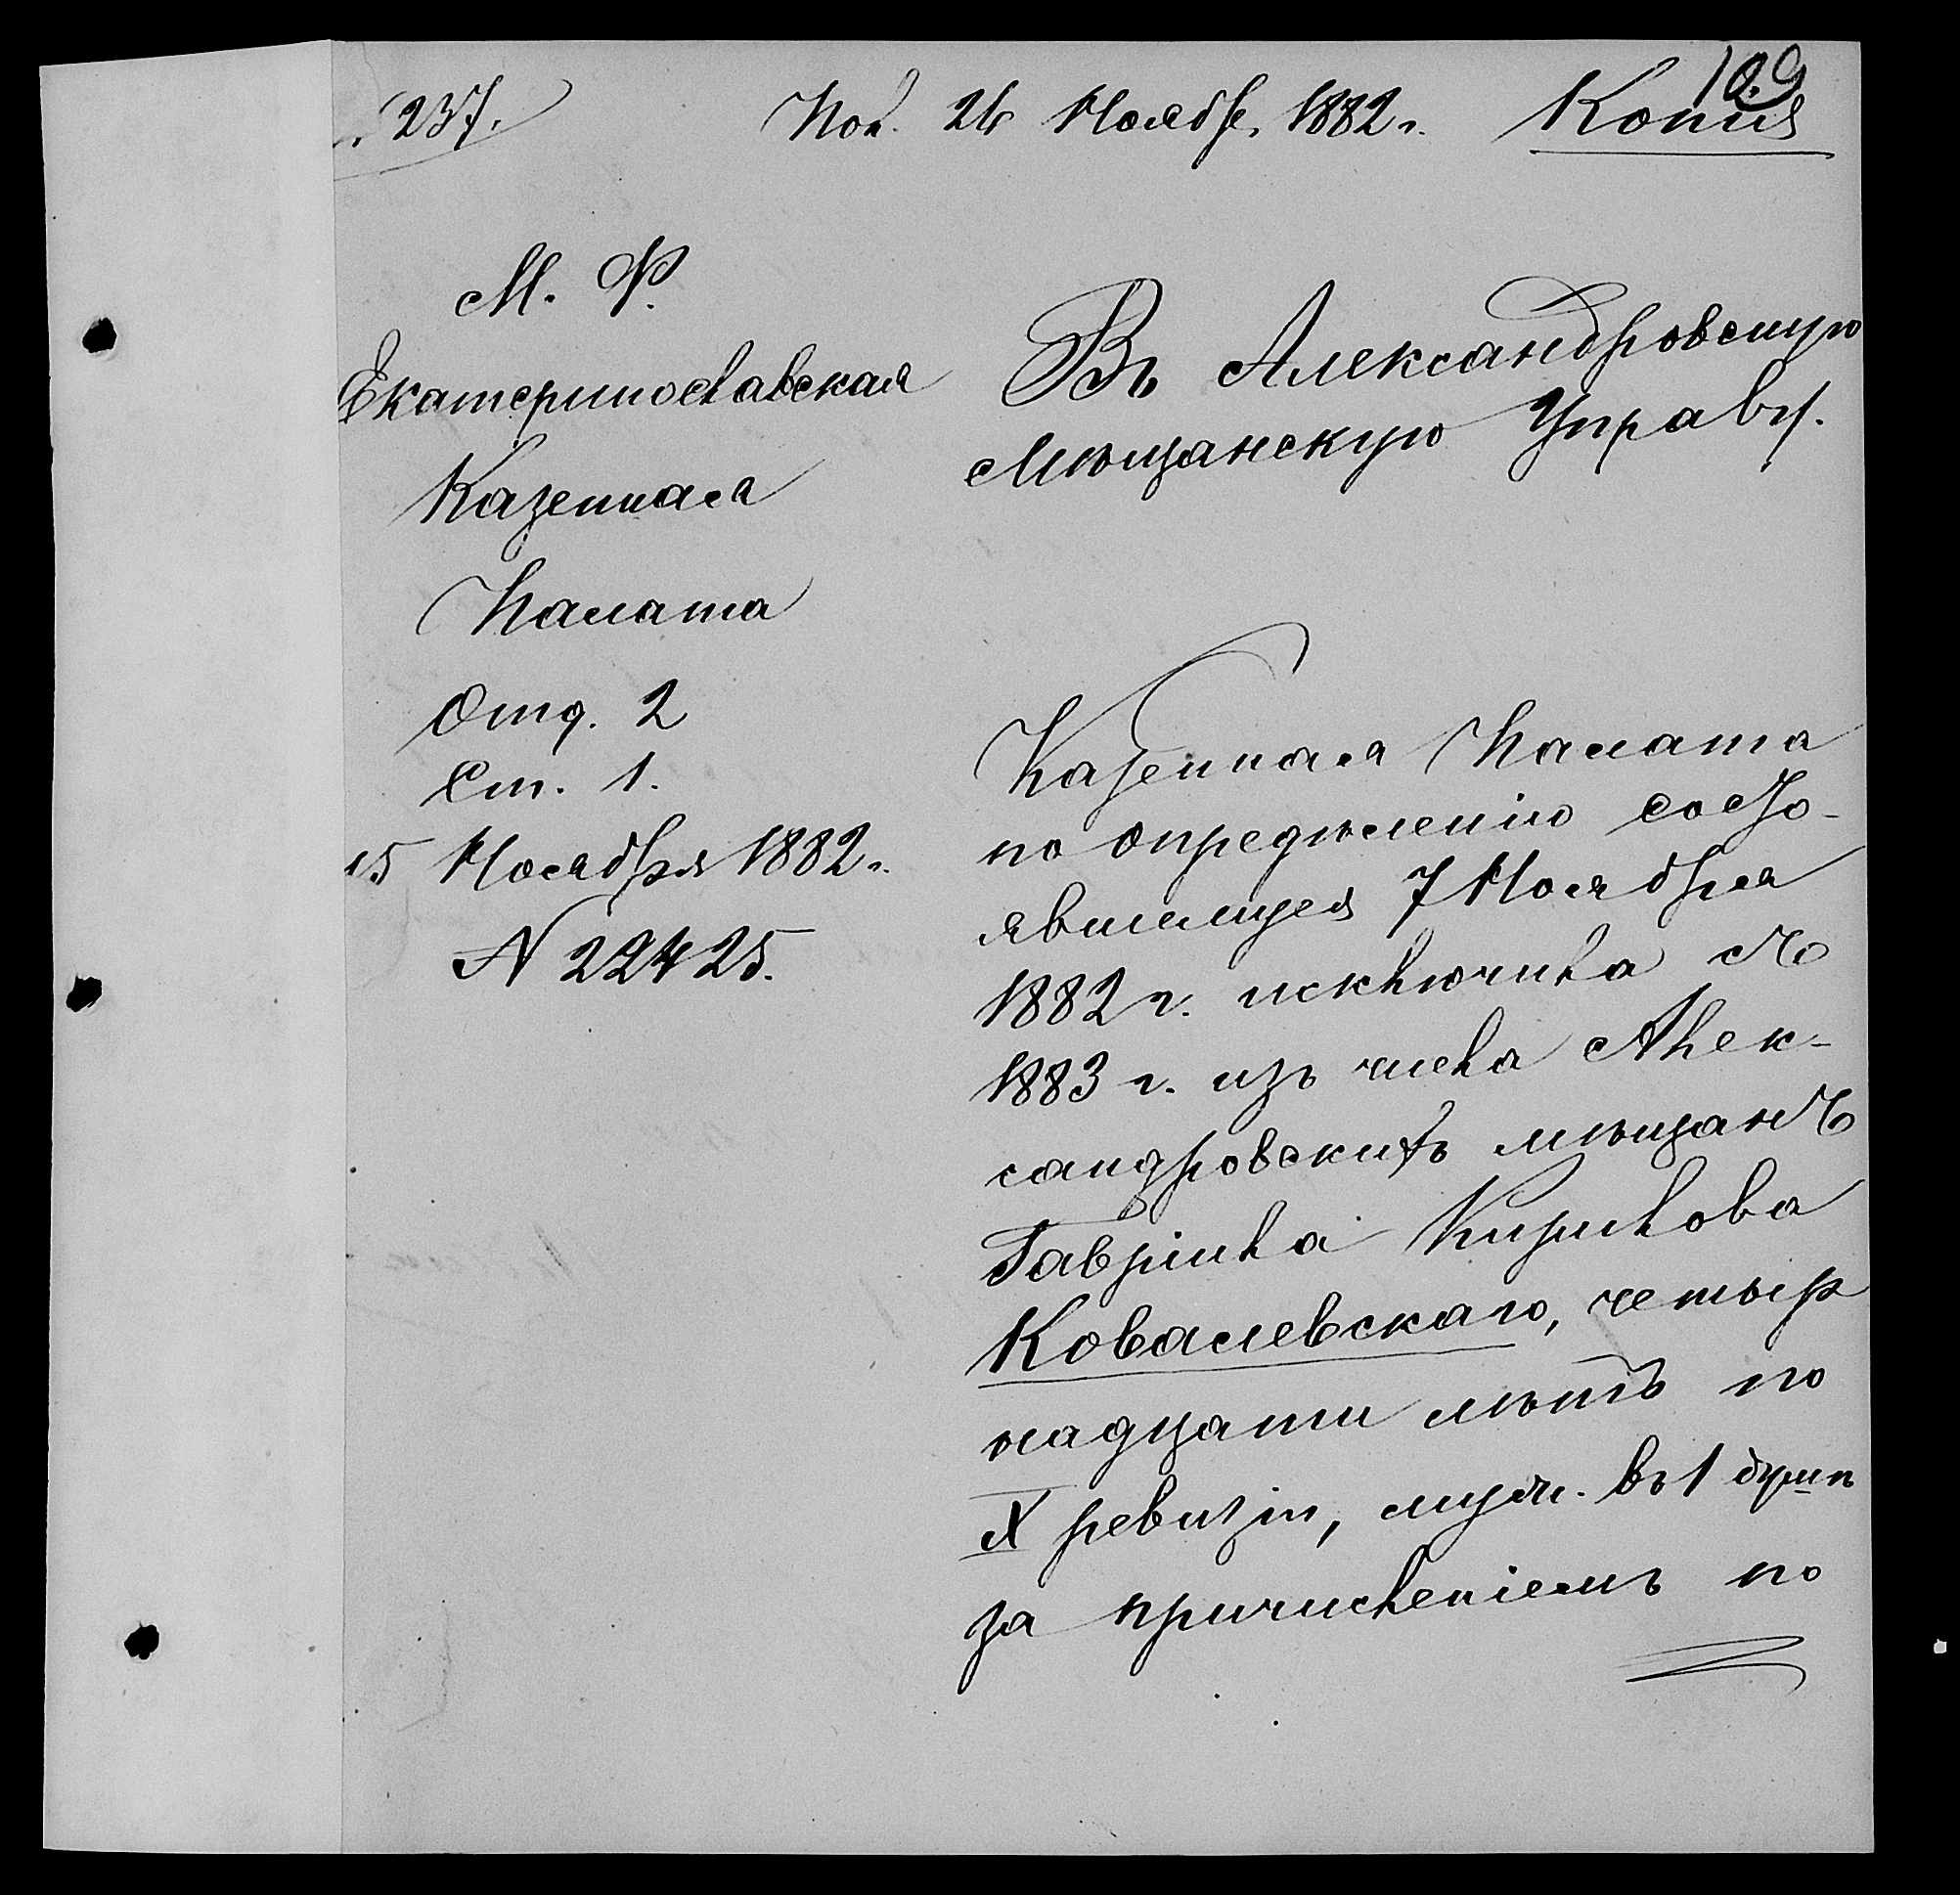 109
237. Пол. 26 Ноябр. 1882 г. Копия
М. Ф.
Екатеринославская
Казенная
Палата
Отд. 2
Ст. 1.
15 Ноября 1882 г.
№ 22425.
Въ Александровскую
Мѣщанскую Управу.
Казенная Палата
по опредѣленію состо-
явшемуся 7 Ноября
1882 г. исключила съ
1883 г. изъ числа Алек-
сандровскихъ мѣщанъ
Гавріила Кирилова
Ковалевскаго, четыр
надцати лѣтъ по
X ревизіи, муж. въ 1 душѣ
за причисленіемъ по